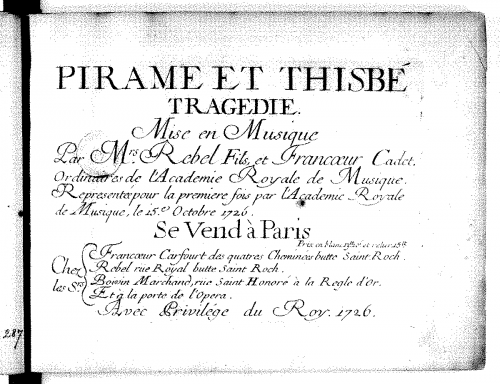 PIRAME ET THISBÉ
TRAGEDIE.
Mise en Musique
Par Mrs. Rebel Fils, et Francœur Cadet.
Ordinaires de l'Academie Royale de Musique.
Representé pour la premiere fois par l'Academie Royale
de Musique, le 15.e Octobre 1726.
Se Vend à Paris
Prix en blanc et relié
Chez les Srs.
Francœur Carfourt des quatres Cheminées butte Saint Roch.
Rebel rue Royal butte Saint Roch.
Boivin Marchand, rue Saint Honoré à la Regle d'Or.
Et à la porte de l'Opera.
Avec Privilége du Roy. 1726.
287